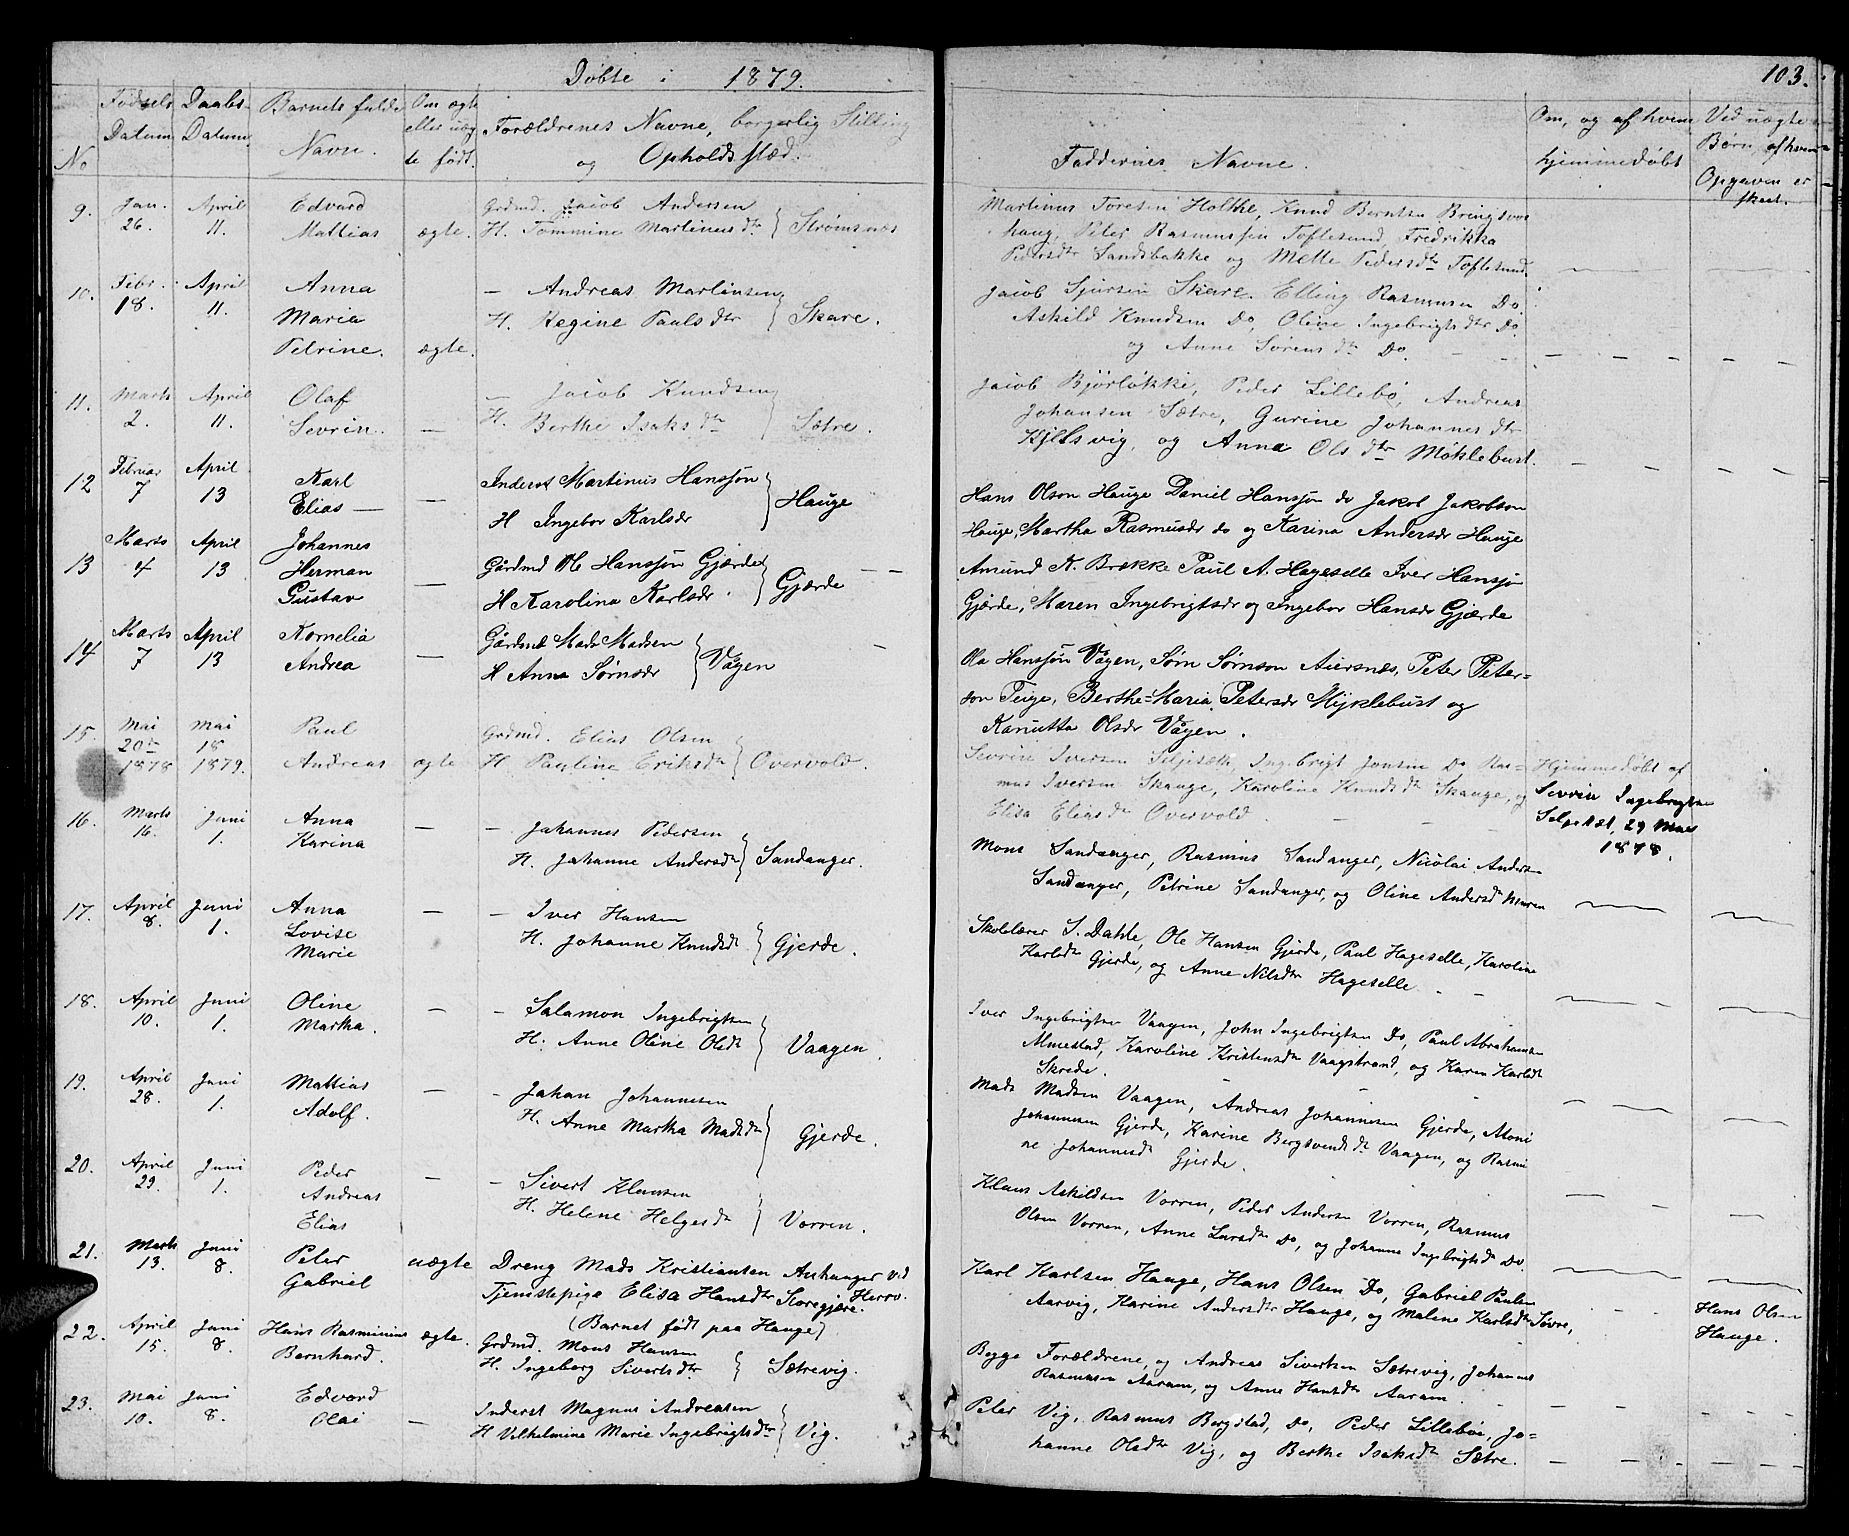 Døbte i 1879.
103.
No
Fødsels Datum
Daabs Datum
Barnets fulde Navn.
Om ægte eller uægte født.
Forældrenes Navne, borgerlig Stilling og Opholdssted.
Faddernes Navne.
Om, og af hvem hjemmedøbt
Ved uægte Børn, af hvem Opgaven er skeet.
9. Jan. 26. April 11. Edvard Mattias ægte.
Grdmd. Jacob Andersen
H. Tommine Martinusdtr } Strømsnes
Martinus Toresen Holthe, Knud Berntsen Bringsvor
haug, Peter Rasmussen Toftesund, Fredrikka
Pedersdtr Sandsbakke og Mette Pedersdtr Toftesund.
10. Febr. 18. April 11. Anna Maria Petrine. ægte.
— Andreas Martinsen
H. Regine Paulsdtr } Skare.
Jacob Sjursen Skare. Elling Rasmusen Do.
Askild Knudsen Do, Oline Ingebrigtsdtr Do
og Anne Sørensdtr Do.
11. Marts 2. April 11. Olaf Sevrin. —
— Jacob Knudsen
H. Berthe Isaksdtr } Sætre.
Jacob Bjørløkke, Peder Lillebø, Andreas
Johansen Sætre, Gurine Johannesdtr
Kjilsvig, og Anna Olsdtr Møklebust.
12 Februar 7 April 13 Karl Elias —
Inderst Martinus Hanssøn
H Ingebor Karlsdr } Hauge
Hans Olson Hauge Daniel Hanssøn do Jakob Jakobson
Hauge, Martha Rasmusdr do og Karina Andersdr Hauge
13 Marts 4 April 13 Johannes Herman Gustav —
Gårdmd Ole Hanssøn Gjærde
H Karolina Karlsdr. } Gjærde
Amund K. Brække Paul A. Hageselle Iver Hanssøn
Gjærde, Maren Ingebrigtsdr og Ingebor Hansdr Gjærde
14 Marts 7 April 13 Kornelia Andrea —
Gårdmd Mads Madsen
H Anna Sørnsdr } Vågen
Ola Hanssøn Vågen, Sørn Sørnson Aursnes, Peter Peter=
son Teige, Berthe=Maria Petersdr Myklebust og
Olsdr Vågen.
15. Mai 20de 1878 Mai 18 1879. Paul Andreas ægte
Grdmd. Elias Olsen
H Pauline Eriksdtr } Overvold.
Sevrin Iversen Seljesæt, Ingebrigt Jonsen Do Ras=
mus Iversen Skauge, Karoline Knudsdtr Skauge, og
Elisa Eliasdtr Overvold.
Hjemmedøbt af
Sevrin Ingebrigtsen
29 Mai
1878.
16. Marts 16. Juni 1. Anna Karina —
— Johannes Pedersen
H. Johanne Andersdtr } Sandanger.
Mons Sandanger, Rasmus Sandanger, Nicolai Andersen
Sandanger, Petrine Sandanger, og Oline Andersdtr Moren
17. April 8. Juni 1. Anna Lovise Marie —
— Iver Hansen
H. Johanne Knudsdtr } Gjerde.
Skolelærer S. Dahle, Ole Hansen Gjerde, Paul Hageselle, Karoline
Karlsdtr Gjerde, og Anne Nilsdtr Hageselle
18. April 10. Juni 1. Oline Martha. —
— Salamon Ingebrigtsen
H. Anne Oline Olsdtr } Vaagen.
Iver Ingebrigtsen Vaagen, John Ingebrigtsen Do, Paul Abrahamsen
Almestad, Karoline Kristensdtr Vaagstrand, og Karen Karlsdtr
Skrede.
19. April 28. Juni 1. Mattias Adolf. —
— Johan Johannesen
H. Anne Martha Madsdtr } Gjerde.
Mads Madsen Vaagen, Andreas Johannesen Gjerde, Moni
Johannesen Gjerde, Karine Bergsvendsdtr Vaagen, og Rasmi
ne Johannesdtr Gjerde.
20. April 29. Juni 1. Peder Andreas Elias —
— Sivert Klausen
H. Helene Helgesdtr } Vorren.
Klaus Askildsen Vorren, Peder Andersen Vorren, Rasmus
Olsen Vorren, Anne Larsdtr Do, og Johanne Ingebrigtsdtr Do.
21. Marts 13. Juni 8. Peter Gabriel uægte
Dreng Mads Kristiansen Aurhauger ved Herrø.
Tjenestepige Elisa Hansdtr Storegjære.
(Barnet født paa Hauge)
Karl Karlsen Hauge, Hans Olsen Do, Gabriel Paulsen
Aarvig, Karine Andersdtr Hauge, og Malene Karlsdtr Tøvre,
Hans Olsen
Hauge.
22. April 15. Juni 8. Hans Rasminius Bernhard. ægte.
Grdmd. Mons Hansen
H. Ingeborg Sivertsdtr } Sætrevig.
Begge Forældrene, og Andreas Sivertsen Sætrevig, Johannes
Rasmusen Aaram, og Anne Hansdtr Aaram.
23. Mai 10. Juni 8. Edvard Olai —
Inderst Magnus Andreasen
H Vilhelmine Marie Ingebrigtsdtr } Vig.
Peter Vig, Rasmus Bergstad, Do, Peder Lillebøe, Jo=
hanne Olsdtr Vig, og Berthe Isaksdtr Sætre.